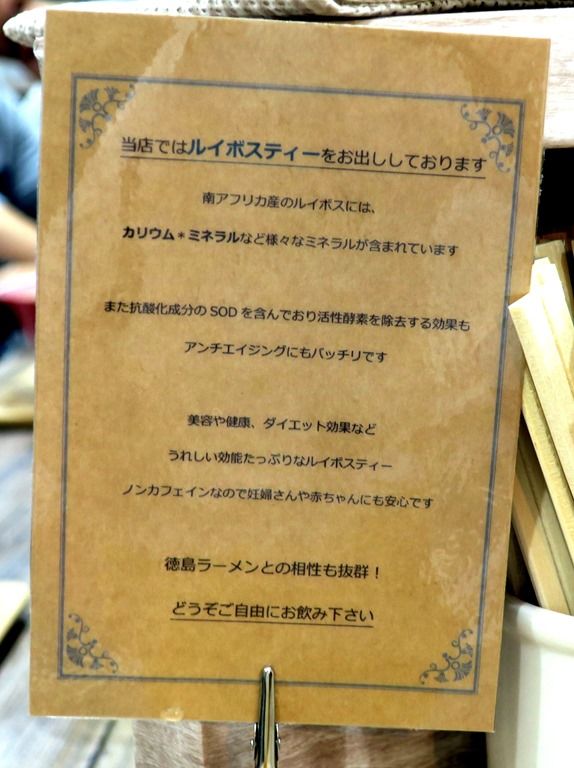 当店ではルイボスティーをお出ししております
南アフリカ産のルイボスには、
カリウム＊ミネラルなど様々なミネラルが含まれています
また抗酸化成分のSODを含んでおり活性酵素を除去する効果も
アンチエイジングにもバッチリです
美容や健康、ダイエット効果など
うれしい効能たっぷりなルイボスティー
ノンカフェインなので妊婦さんや赤ちゃんにも安心です
徳島ラーメンとの相性も抜群！
どうぞご自由にお飲み下さい